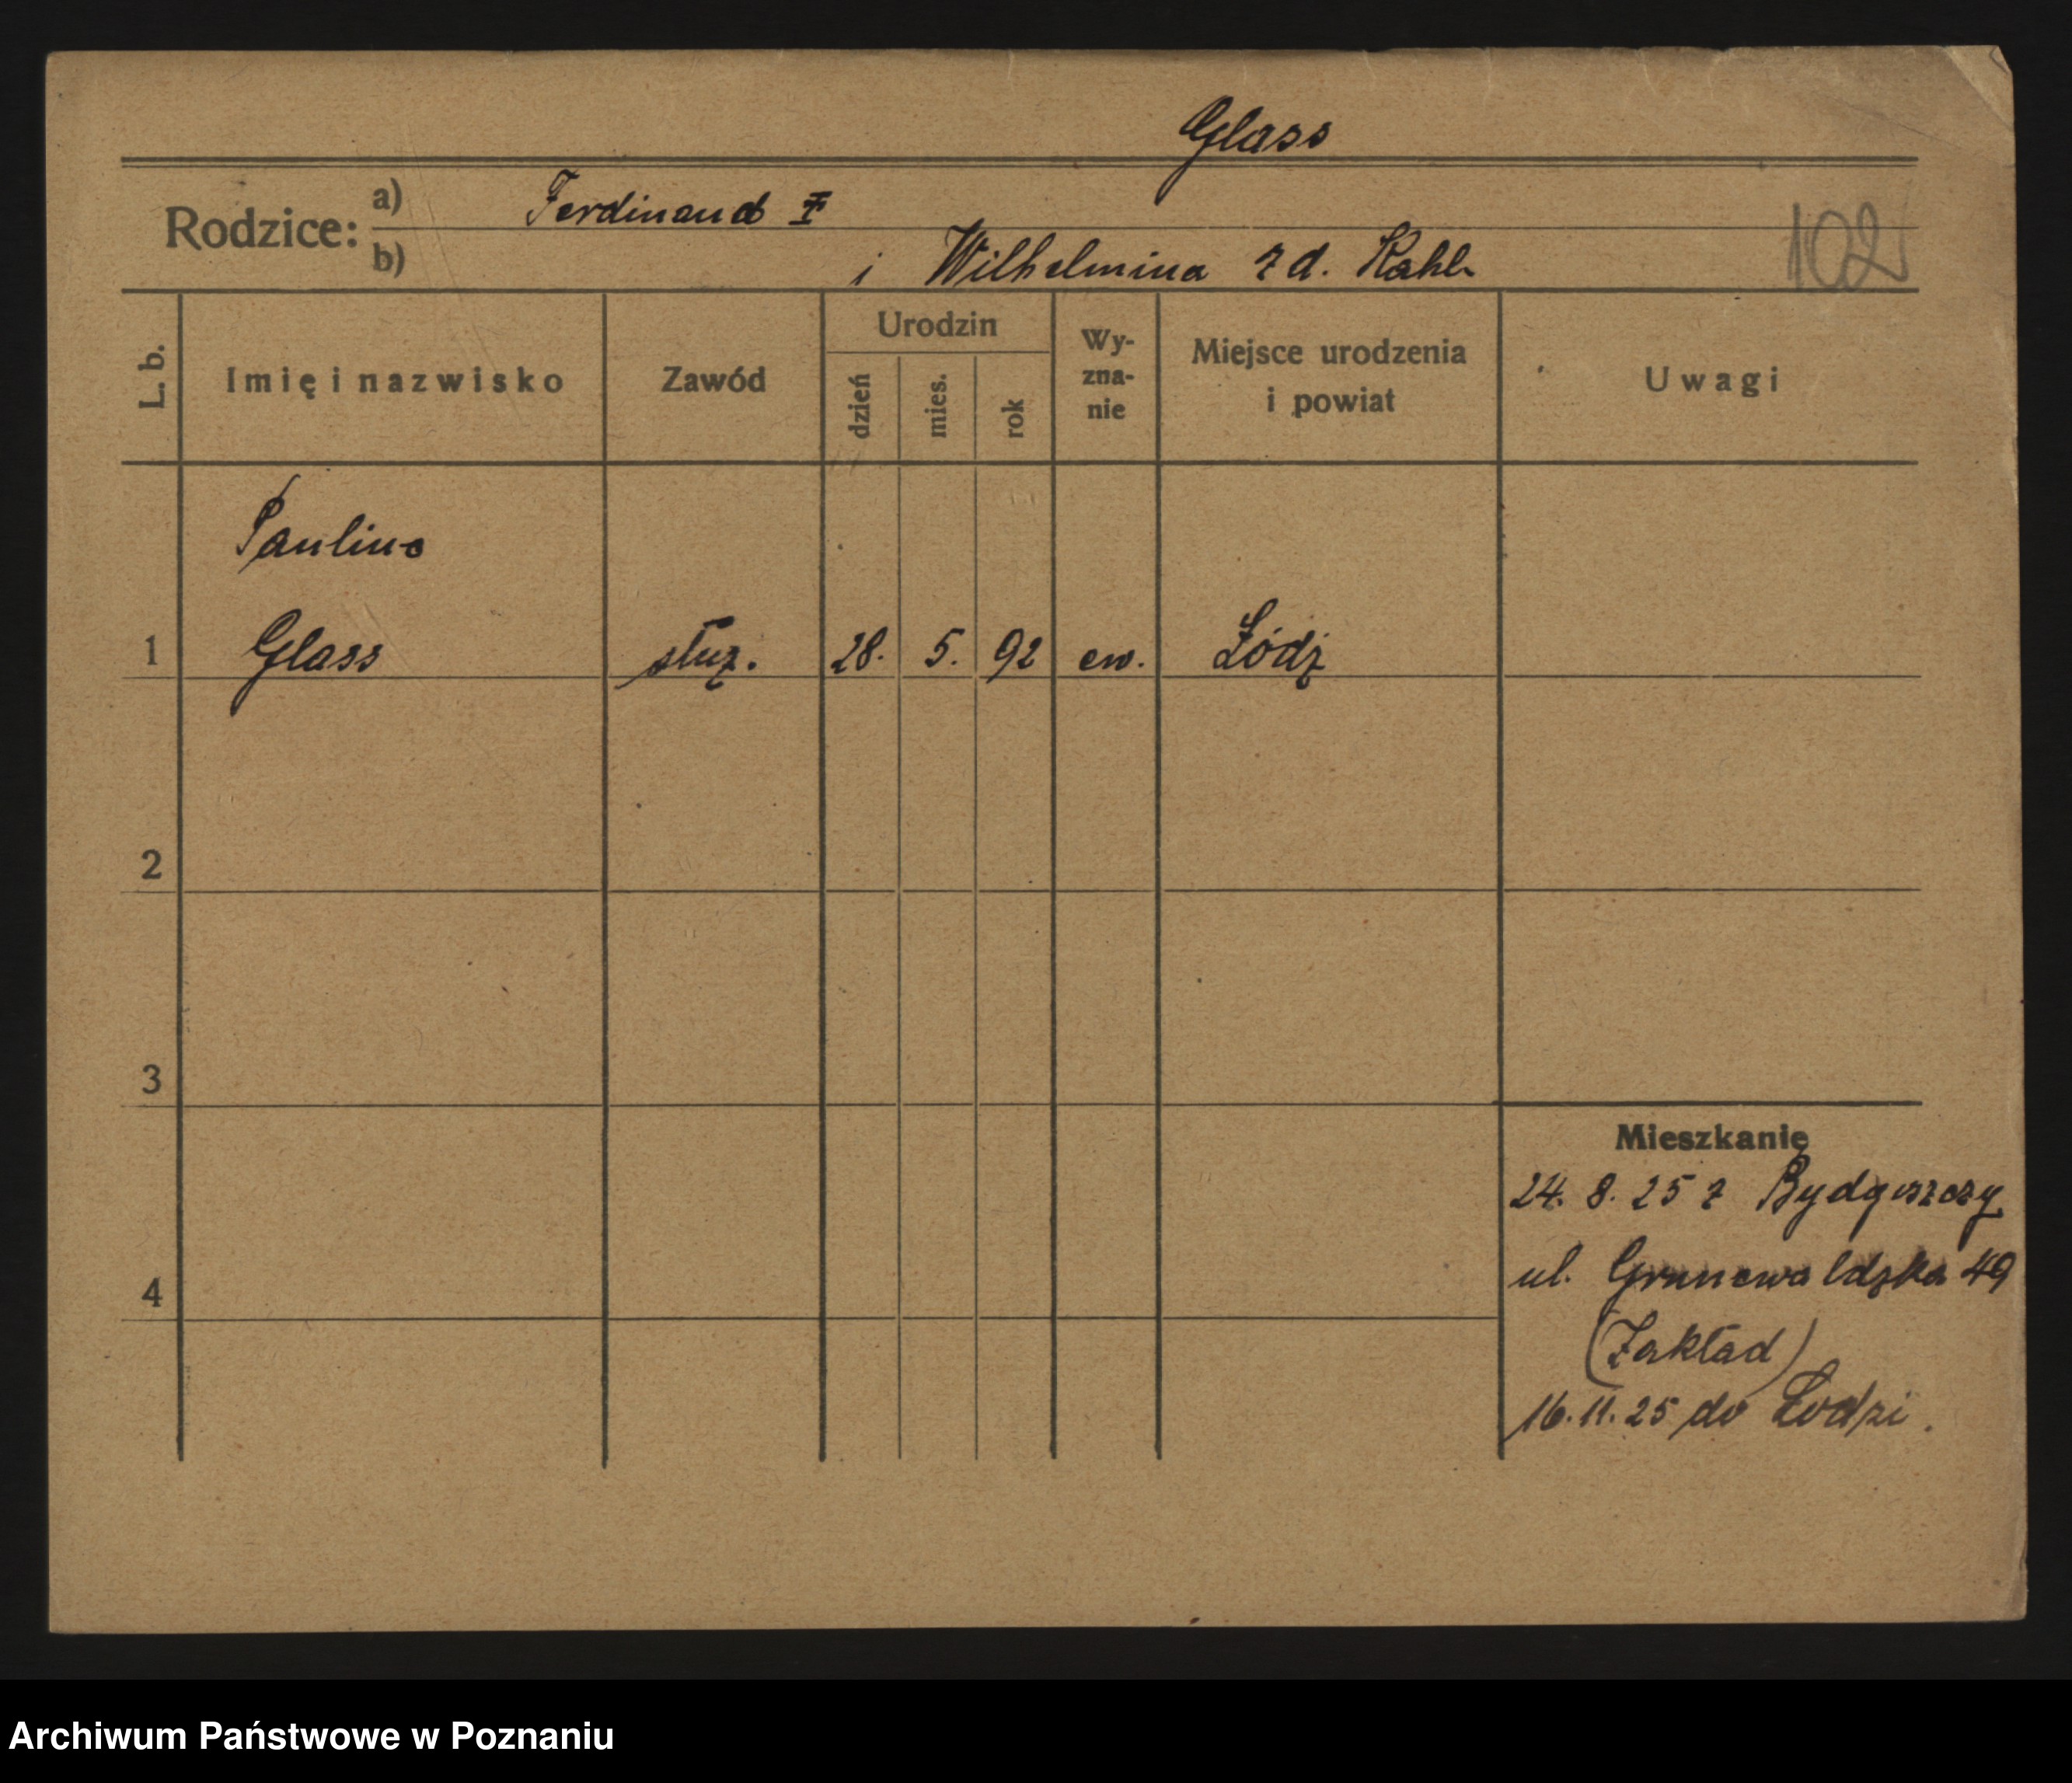 Glass
Rodzice: a) Ferdinand
b) i Wilhelmina z d. Kahl
102
L. b.
Imię i nazwisko
Zawód
Urodzin
dzień
mies.
rok
Wy-
zna-
nie
Miejsce urodzenia
i powiat
Uwagi
Paulina
1 Glass służ. 28. 5. 92 ew. Łódź
2
3
Mieszkanie
24. 8. 25 z Bydgoszczy
ul. Grunewaldzka 49
4
(Zakład)
16. 11. 25 do Łodzi.
Archiwum Państwowe w Poznaniu